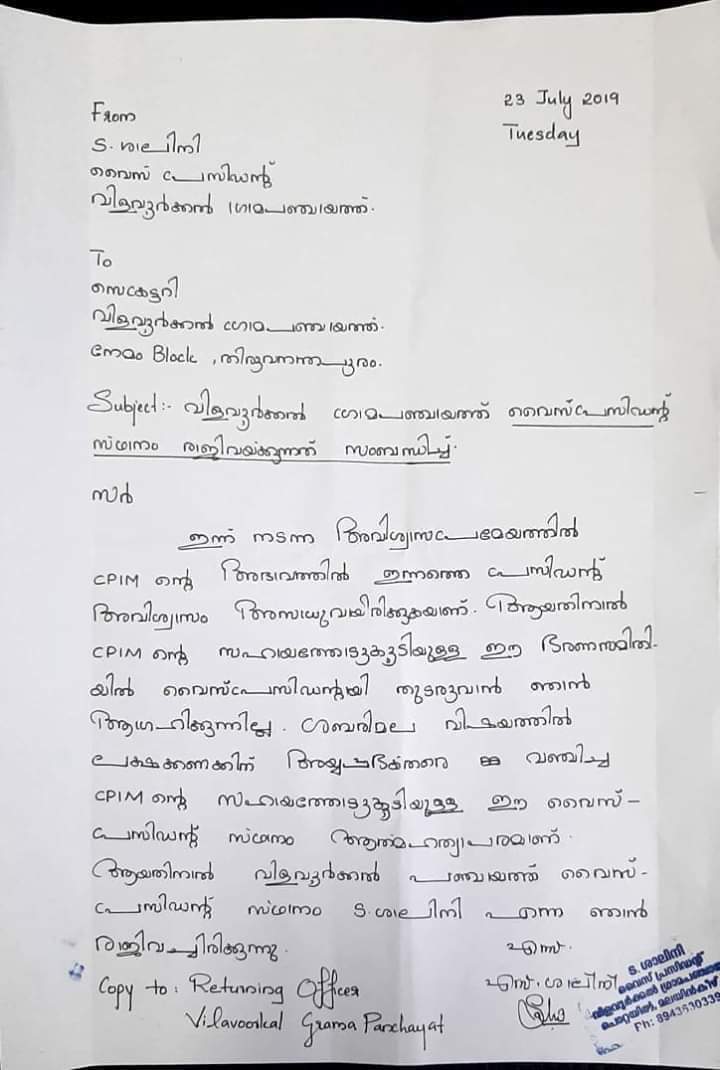 23 July 2019
Tuesday
From
ട. ശാലിനി
വൈസ് പ്രസിഡന്റ്
വിളവൂർക്കൽ ഗ്രാമപഞ്ചായത്ത്.
To
സെക്രട്ടറി
വിളവൂർക്കൽ ഗ്രാമപഞ്ചായത്ത്.
നേമം Block, തിരുവനന്തപുരം.
Subject:- വിളവൂർക്കൽ ഗ്രാമപഞ്ചായത്ത് വൈസ്പ്രസിഡന്റ്
സ്ഥാനം രാജിവയ്ക്കുന്നത് സംബന്ധിച്ച്.
സർ
ഇന്ന് നടന്ന അവിശ്വാസപ്രമേയത്തിൽ
CPIM ന്റെ അഭാവത്തിൽ ഇന്നത്തെ പ്രസിഡന്റ്
അവിശ്വാസം അസാധുവായിരിക്കുകയാണ്. ആയതിനാൽ
CPIM ന്റെ സഹായത്തോട്ടുകൂടിയുള്ള ഈ ഭരണസമിതി-
യിൽ വൈസ്പ്രസിഡന്റായി തുടരുവാൻ ഞാൻ
ആഗ്രഹിക്കുന്നില്ല. ശബരിമല വിഷയത്തിൽ
ലക്ഷക്കണക്കിന് അയ്യപ്പഭക്തരെ വഞ്ചിച്ച
CPIM ന്റെ സഹായത്തോട്ടുകൂടിയുള്ള ഈ വൈസ്-
പ്രസിഡന്റ് സ്ഥാനം ആത്മഹത്യാപരമാണ്.
ആയതിനാൽ വിളവൂർക്കൽ പഞ്ചായത്ത് വൈസ്-
പ്രസിഡന്റ് സ്ഥാനം ട. ശാലിനി എന്ന ഞാൻ
രാജിവച്ചിരിക്കുന്നു.
എന്ന്.
എസ്. ശാലിനി
Copy to: Returning Officer
Vilavoorkal Grama Panchayat
ട. ശാലിനി
വൈസ് പ്രസിഡന്റ്
വിളവൂർക്കൽ ഗ്രാമപഞ്ചായത്ത്
മലയിൻകീഴ്
Ph: 8943630339